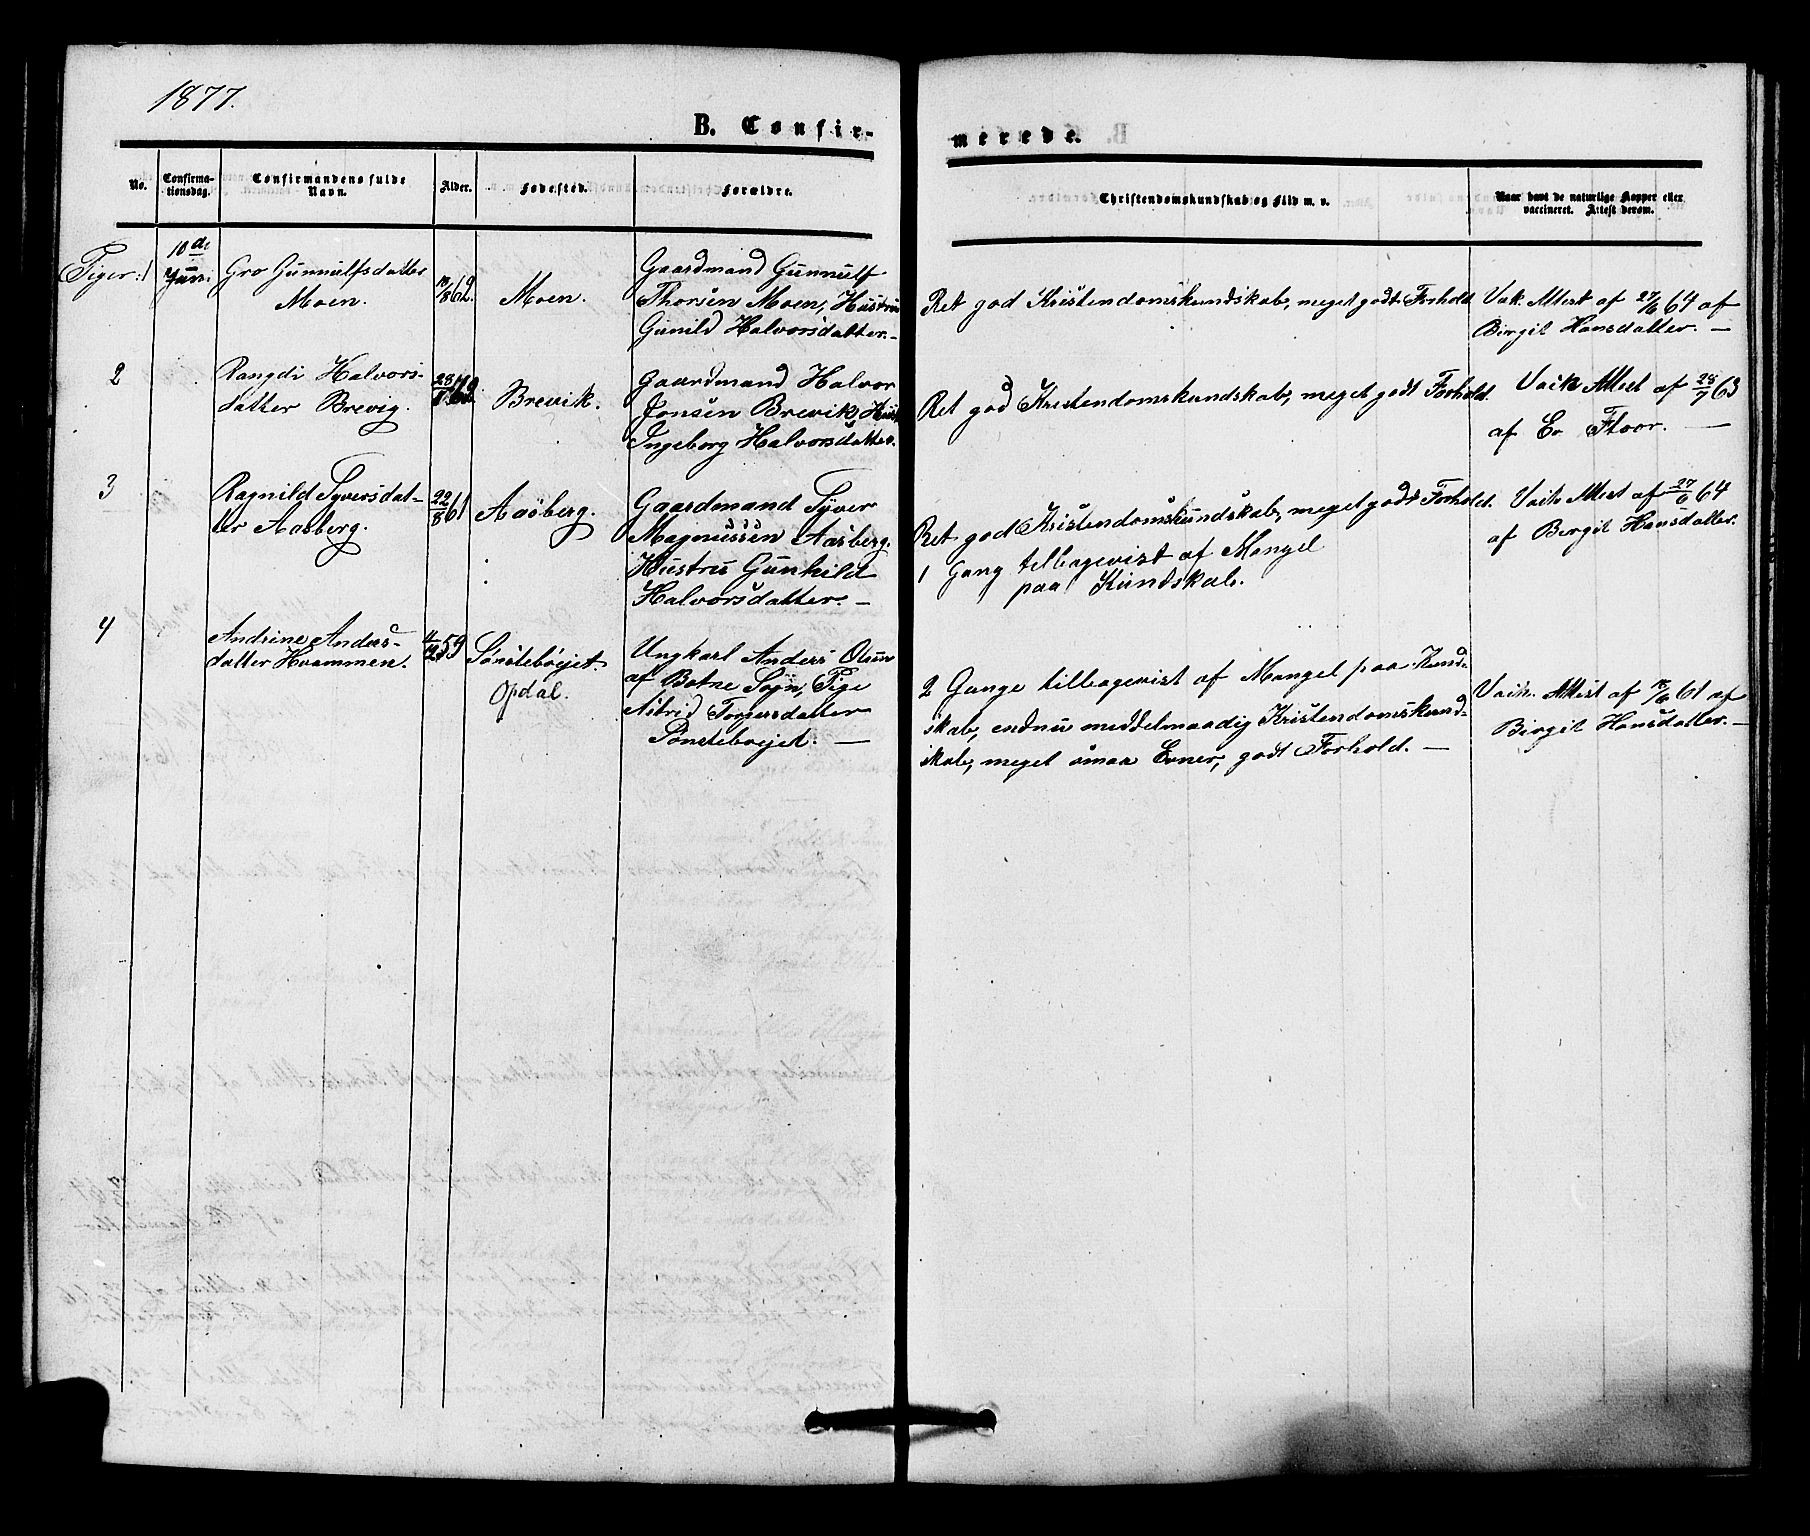 1877.
B. Confir-
merede.
No.
Confirma-
tionsdag.
Confirmandens fulde
Navn.
Alder.
Fødested.
Forældre.
Christendomskundskab og Flid m. v.
Naar havt de naturlige Kopper eller
vaccineret. Attest derom.
Piger: 1
10de
Juni.
Gro Gunnulfsdatter
Moen.
/8 62.
Moen.
Gaardmand Gunnulf
Thorsen Moen, Hustru
Gunild Halvorsdatter.-
Ret god Kristendomskundskab, meget godt Forhold
Vak. Attest af 27/6 64 af
Birgit Hansdatter. -
2
Rangdi Halvors-
datter Brevig.
Brevik.
Gaardmand Halvor
Jonsen Brevik, Hust
Ingeborg Halvorsdatter.
Ret god Kristendomskundskab, meget godt Forhold.
Vaik Attest af 28/7 63
af Ev Floor. -
3
Ragnild Tyversdat-
ter Aasberg.
22/8 61
Aasberg.
Gaardmand Tyver
Magnussen Aasberg.
Hustru Gunhild
Halvorsdatter. -
Ret god Kristendomskundskab, meget godt Forhold.
1 Gang tilbagevist af Mangel
paa Kundskab.
Vaik. Attest af 27/6 64
af Birgit Hansdatter.
4
Andrine Anders-
datter Hvammen.
59
Sönstebøjet.
Opdal.
Ungkarl Anders Olsen
af Botne Sogn, Pige
Astrid Torgersdatter
Sönstebøjet. -
2 Gange tilbagevist af Mangel paa Kund-
skab, endnu middelmaadig Kristendomskund-
skab, meget smaa Evner, godt Forhold. -
Vaik. Attest af /6 61 af
Birgit Hansdatter. -